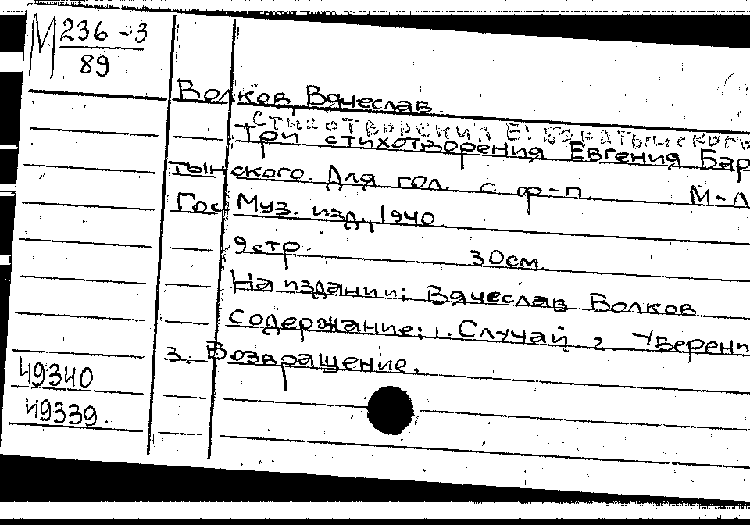 М 236-3
89
Волков, Вячеслав
Три стихотворения Евгения Бар
тынского. Для гол. с ф-п. М-Л
Гос Муз. изд., 1940
9 стр. 30 см.
На издании: Вячеслав Волков
Содержание: 1. Случай 2 Уверени
3. Возвращение.
49340
49339.